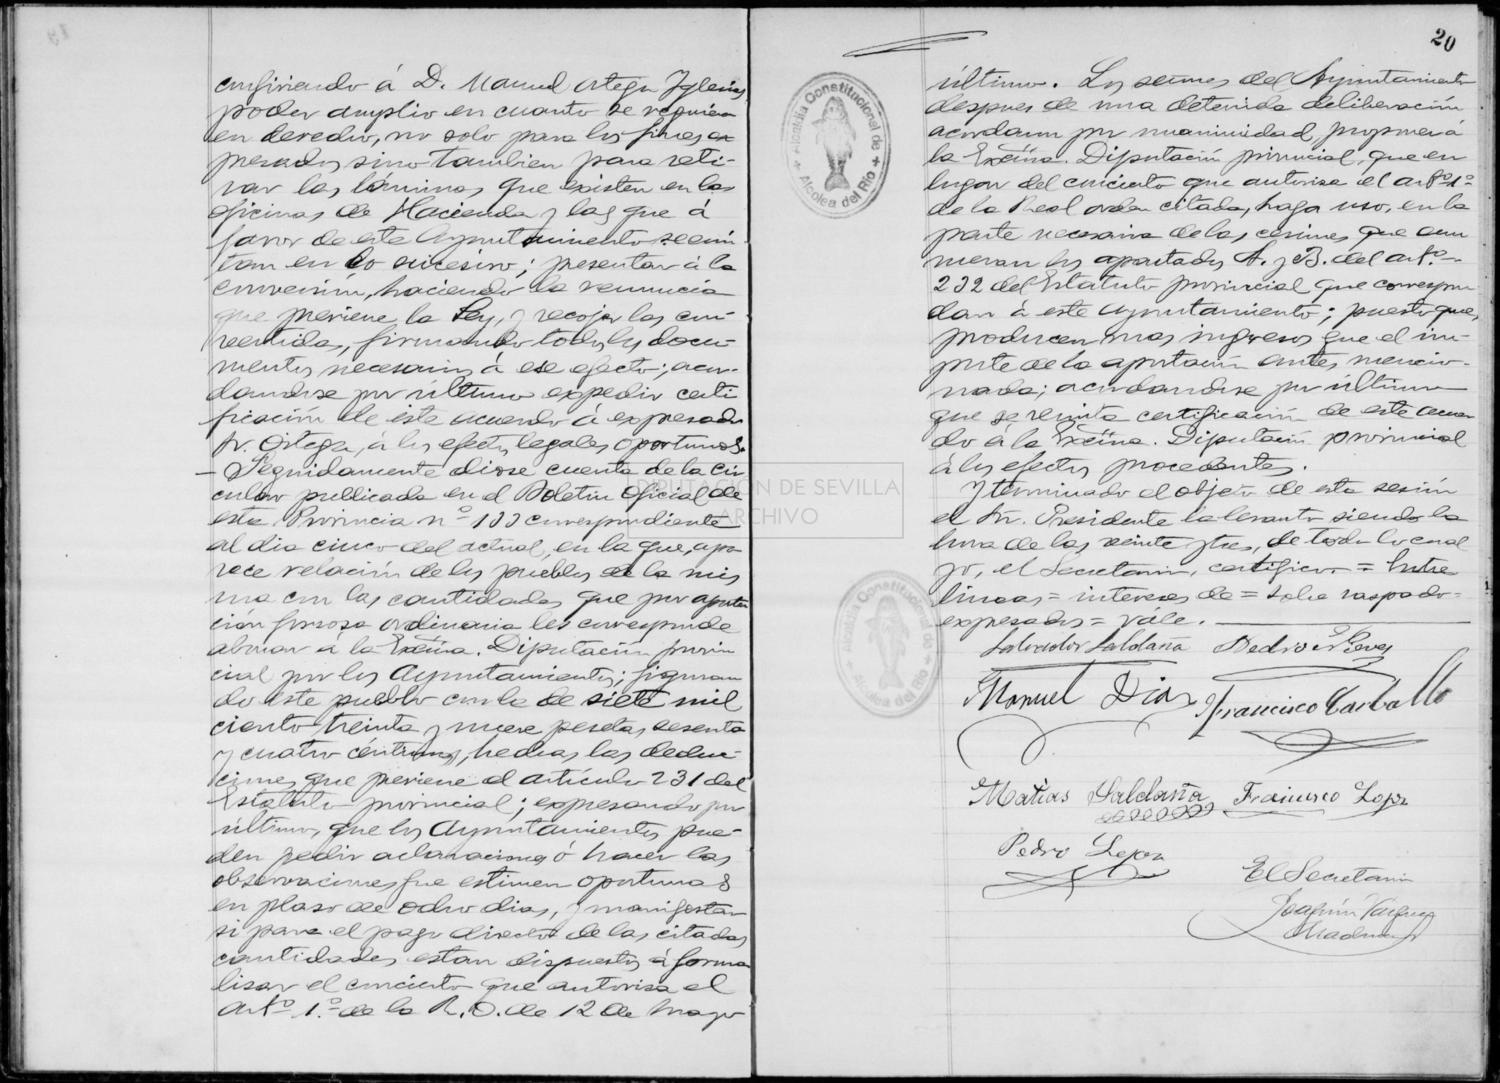 confiriendo á D. Manuel Ortega Iglesias
poder amplio en cuanto se requiera
en derecho, no solo para los fines ex
presados, sino tambien para reti-
rar las láminas, que existen en las
oficinas de Hacienda y las que á
favor de este Ayuntamiento se emi
tan en lo sucesivo; presentar á la
conversión, haciendo la renuncia
que previene la Ley, y recojer las con-
vertidas, firmando todos los docu-
mentos necesarios á ese efecto; acor-
dandose por último expedir certi
ficación de este acuerdo á expresado
Sr. Ortega, á los efectos legales oportunos.
— Seguidamente diose cuenta de la cir
cular publicada en el Boletin Oficial de
esta Provincia nº 133 correspondiente
al dia cinco del actual, en la que, apa
rece relación de los pueblos de la mis
ma con las cantidades que por aporta
ción forzosa ordinaria les corresponde
abonar á la Excma. Diputación provin
cial por los Ayuntamientos; figuran
do este pueblo con la de siete mil
ciento treinta y nueve pesetas, sesenta
y cuatro céntimos, hechas las deduc-
ciones que previene el artículo 231 del
Estatuto provincial; expresando por
último, que los Ayuntamientos pue-
den pedir aclaraciones ó hacer las
observaciones que estimen oportunas
en plazo de ocho dias, y manifestar
si para el pago directo de las citadas
cantidades estan dispuestos á forma
lizar el concierto que autoriza el
artº 1.º de la R. O. de 12 de Mayo
20
último. Los señores del Ayuntamiento
despues de una detenida deliberación
acordaron por unanimidad, proponer á
la Excma. Diputación provincial, que en
lugar del concierto que autoriza el artº 1º
de la Real orden citada, haga uso, en la
parte necesaria de las cesiones que enu
meran los apartados A. y B. del artº
232 del Estatuto provincial que correspon
dan á este Ayuntamiento; puesto que,
producen mas ingresos que el im-
porte de la aportación antes mencio-
nada; acordandose por último
que se remita certificación de este acuer
do á la Excma. Diputación provincial
á los efectos procedentes.
Y terminado el objeto de esta sesión
el Sr. Presidente la levantó siendo la
hora de las veinte y tres, de todo lo cual
yo, el Secretario, certifico. = Entre
lineas = intereses de = sobre raspado =
expresados = vále.
Salvador Saldaña Pedro
Manuel Dias Francisco Carballo
Matias Saldaña Francisco Lopez
Pedro Lopez
El Secretario
Joaquín Vázquez
Alcaldia Constitucional de
Alcolea del Rio
Alcaldia Constitucional de
Alcolea del Rio
DIPUTACIÓN DE SEVILLA
ARCHIVO